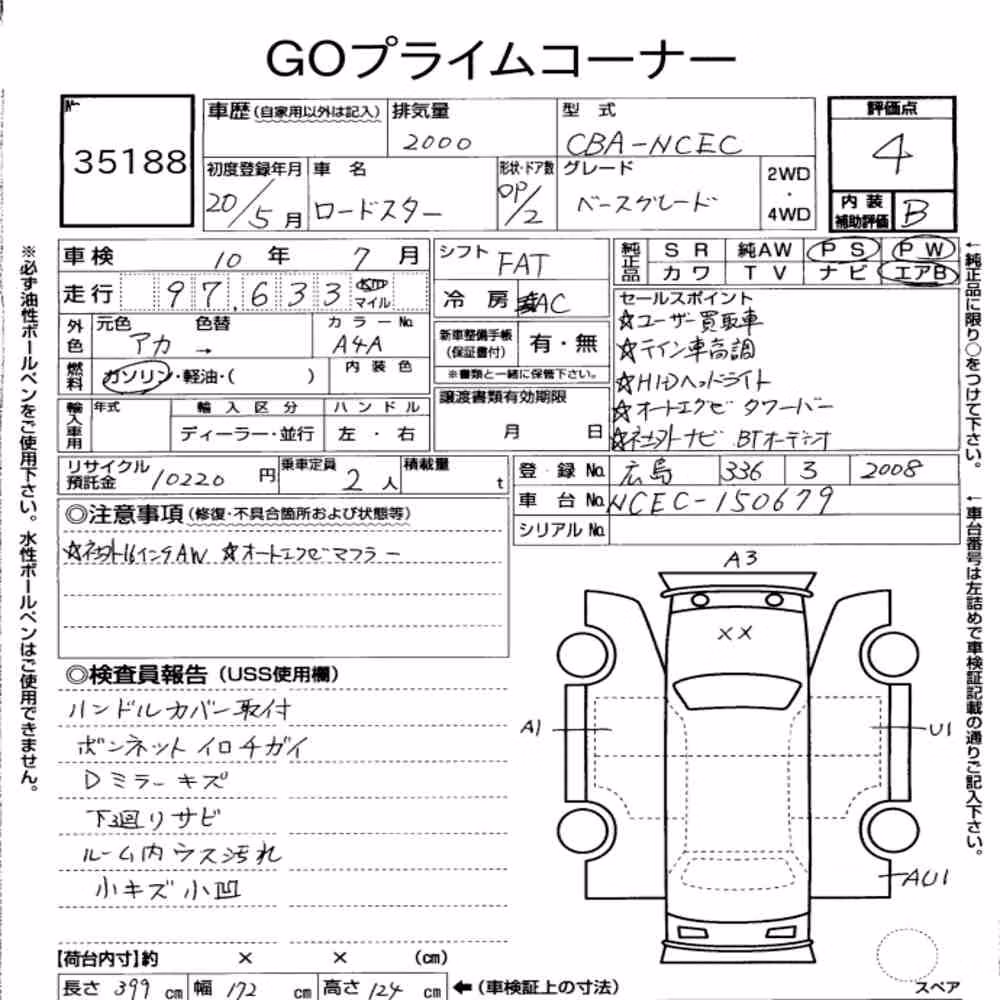 GOプライムコーナー
№ 35188
車歴(自家用以外は記入) 排気量 2000 型式 CBA-NCEC 評価点 4
初度登録年月 20/5月 車名 ロードスター 形状・ドア数 OP/2 グレード ベースグレード 2WD・4WD 内装補助評価 B
車検 10年 7月 シフト FAT 純正品 SR 純AW PS PW
カワ TV ナビ エアB
走行 97,633 km マイル 冷房 AC
外色 元色 アカ 色替 → カラーNo. A4A
新車整備手帳(保証書付) 有・無
※書類と一緒に保管下さい。
燃料 ガソリン・軽油・( ) 内装色
輸入車用 年式 輸入区分 ディーラー・並行 ハンドル 左・右
譲渡書類有効期限 月 日
セールスポイント
☆ユーザー買取車
☆テイン車高調
☆HIDヘッドライト
☆オートエグゼ タワーバー
☆社外ナビ BTオーデオ
リサイクル預託金 10220円 乗車定員 2人 積載量 t
登録No. 広島 336 3 2008
車台No. NCEC-150679
シリアルNo.
◎注意事項(修復・不具合箇所および状態等)
☆社外16インチAW ☆オートエグゼマフラー
◎検査員報告(USS使用欄)
ハンドルカバー取付
ボンネットイロチガイ
Dミラーキズ
下廻りサビ
ルーム内ウス汚れ
小キズ小凹
A3
××
A1
U1
AU1
スペア
【荷台内寸】約 × × (cm)
長さ 399 cm 幅 172 cm 高さ 124 cm ←(車検証上の寸法)
※必ず油性ボールペンをご使用下さい。水性ボールペンはご使用できません。
←純正品に限り○をつけて下さい。
←車台番号は左詰めで車検証記載の通りご記入下さい。